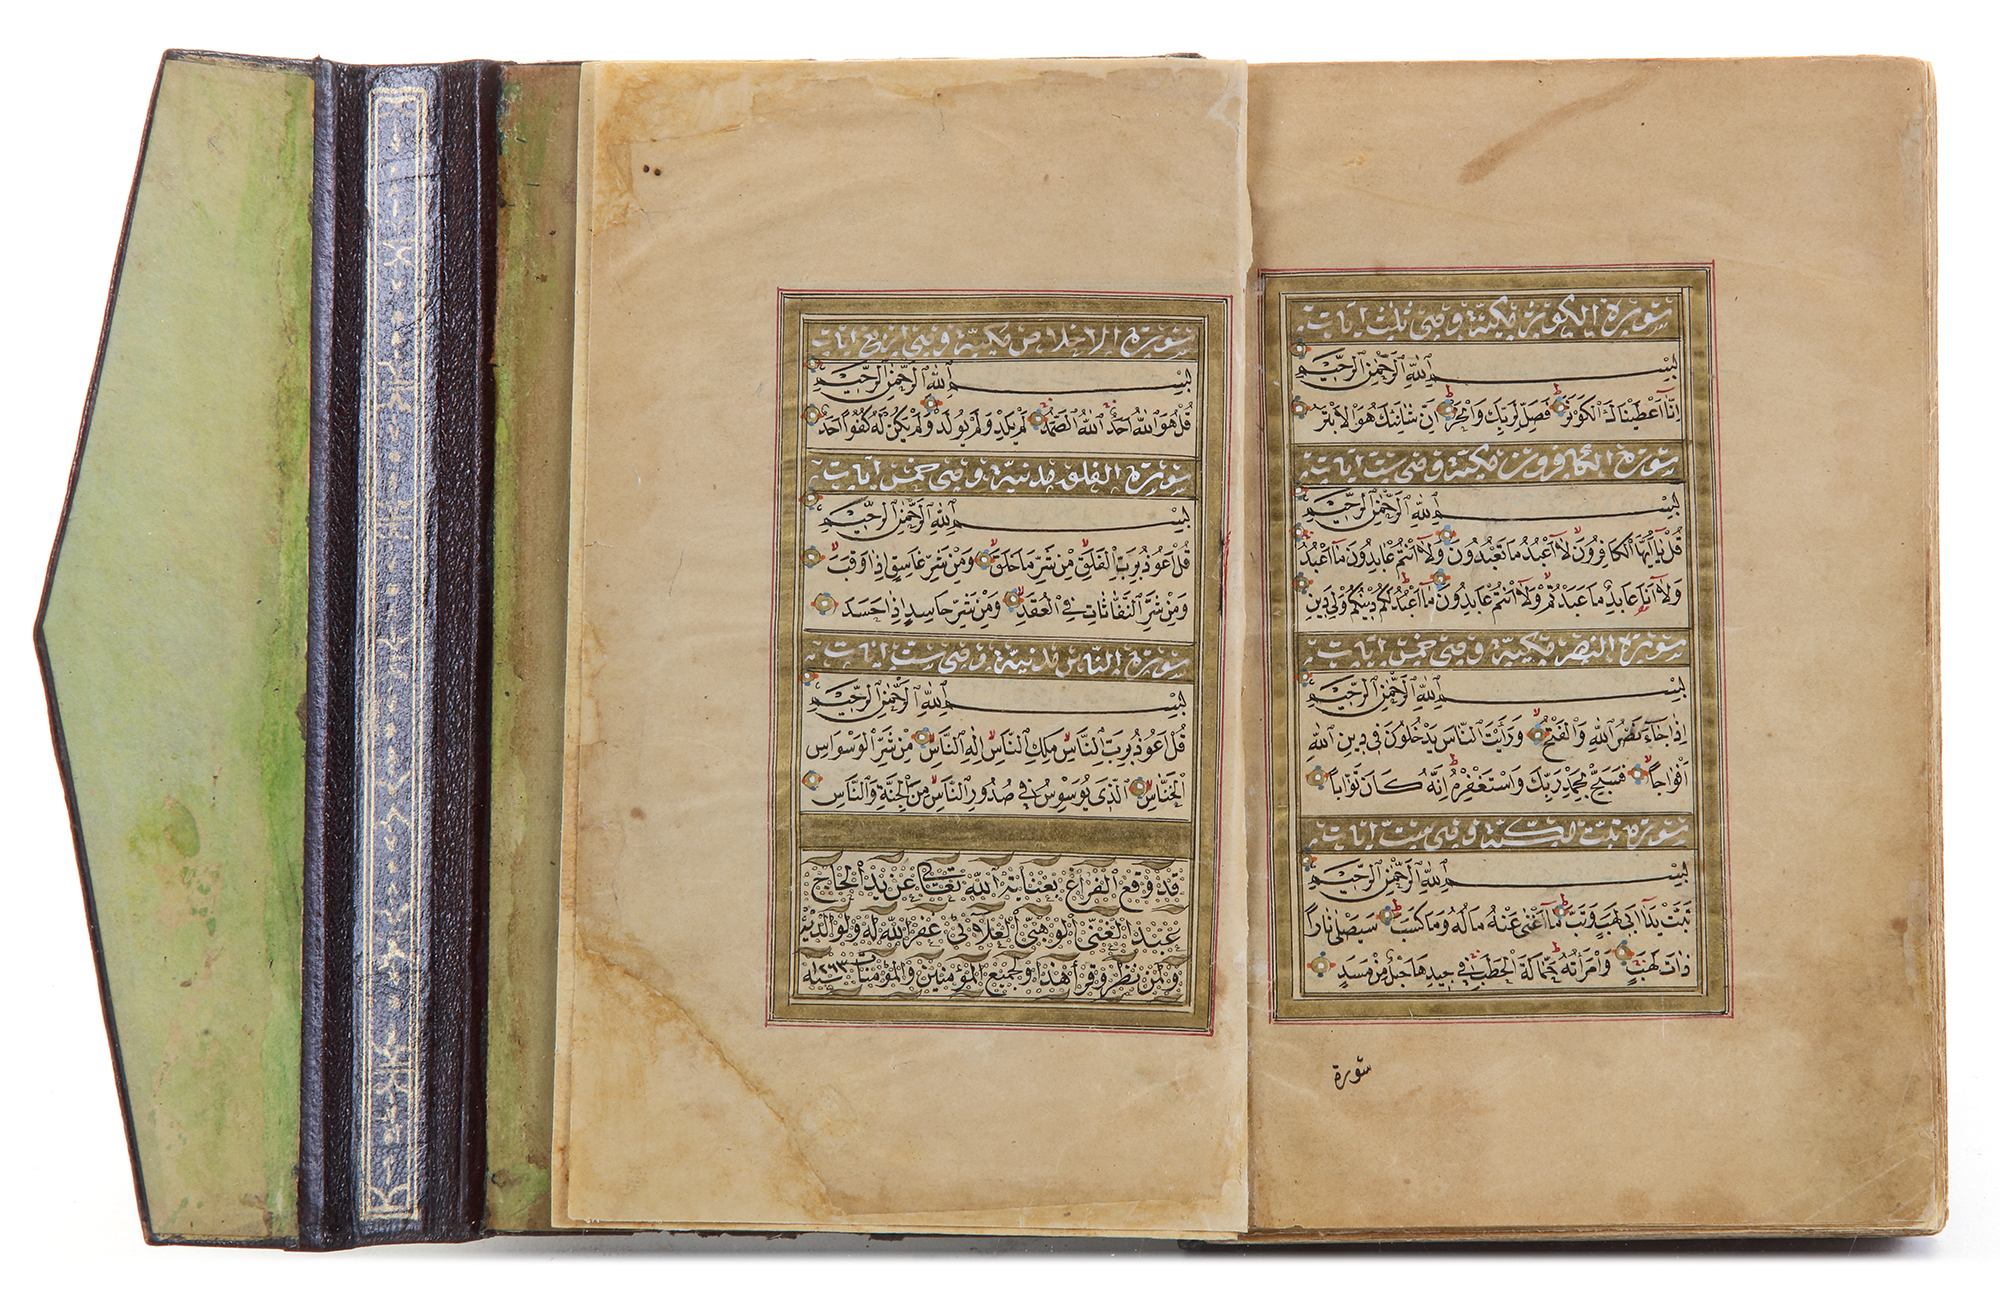 سورة الكوثر مكية وهي ثلث ايات
بسم الله الرحمن الرحيم
انا اعطيناك الكوثر فصل لربك وانحر ان شانئك هو الابتر
سورة الكافرون مكية وهي ست ايات
بسم الله الرحمن الرحيم
قل يا ايها الكافرون لا اعبد ما تعبدون ولا انتم عابدون ما اعبد
ولا انا عابد ما عبدتم ولا انتم عابدون ما اعبد لكم دينكم ولي دين
سورة النصر مكية وهي خمس ايات
بسم الله الرحمن الرحيم
اذا جاء نصر الله والفتح ورايت الناس يدخلون في دين الله
افواجا فسبح بحمد ربك واستغفره انه كان توابا
سورة تبت مكية وهي ست ايات
بسم الله الرحمن الرحيم
تبت يدا ابي لهب وتب ما اغنى عنه ماله وما كسب سيصلى نارا
ذات لهب وامراته حمالة الحطب في جيدها حبل من مسد
سورة
سورة الاخلاص مكية وهي اربع ايات
بسم الله الرحمن الرحيم
قل هو الله احد الله الصمد لم يلد ولم يولد ولم يكن له كفوا احد
سورة الفلق مدنية وهي خمس ايات
بسم الله الرحمن الرحيم
قل اعوذ برب الفلق من شر ما خلق ومن شر غاسق اذا وقب
ومن شر النفاثات في العقد ومن شر حاسد اذا حسد
سورة الناس مدنية وهي ست ايات
بسم الله الرحمن الرحيم
قل اعوذ برب الناس ملك الناس اله الناس من شر الوسواس
الخناس الذي يوسوس في صدور الناس من الجنة والناس
قد وقع الفراغ بعناية الله تعالى عن يد الحاج
عبد الغني الوهبي العلائي غفر الله له ولوالديه
ولمن نظر وقرأ هذا ولجميع المؤمنين والمؤمنات سنه ١٢٦٣